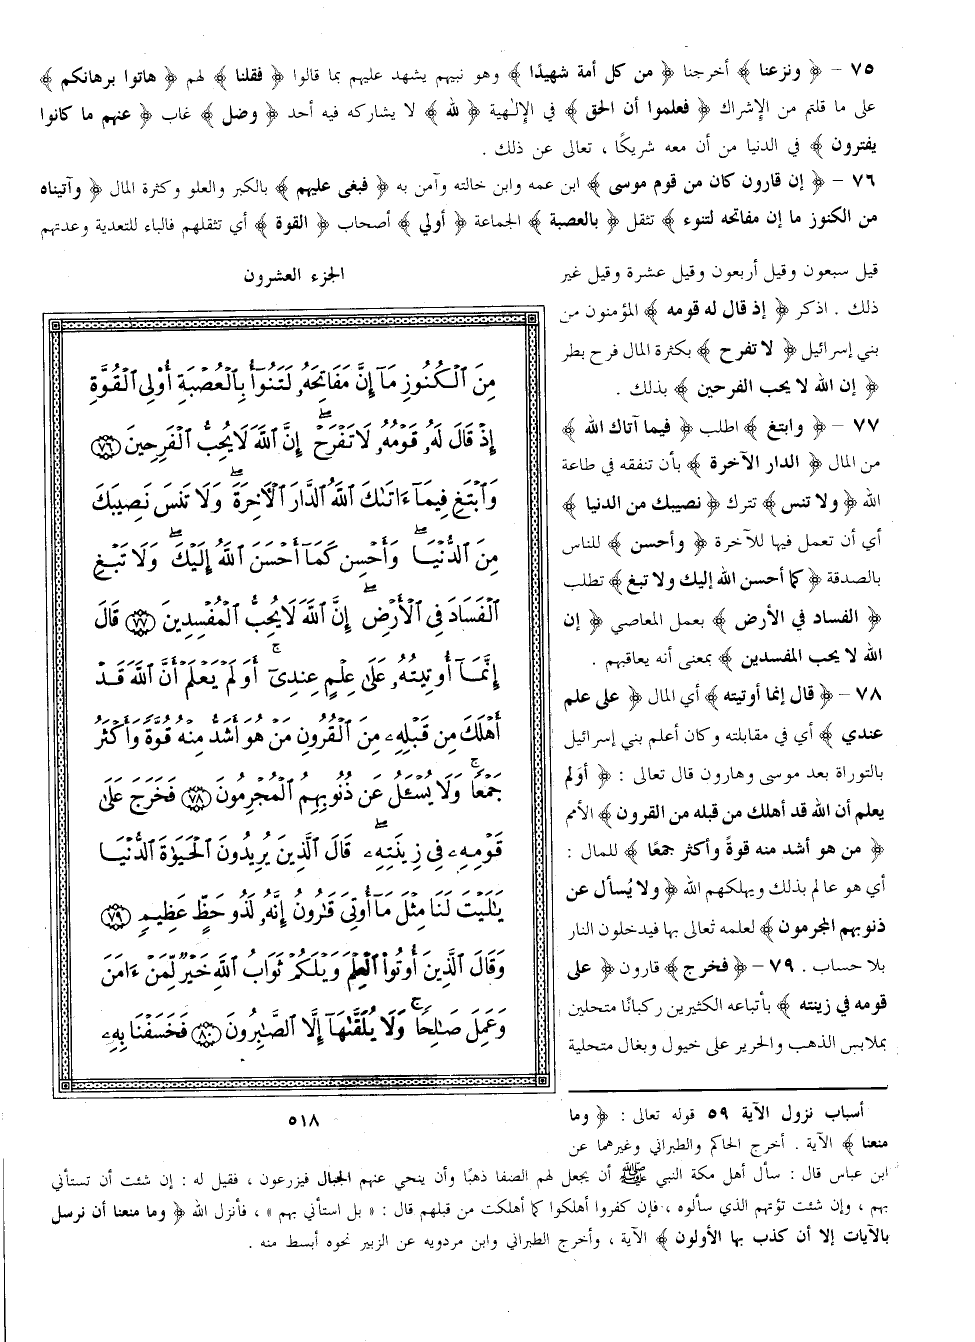 ٧٥ – ﴿ ونزعنا ﴾ أخرجنا ﴿ من كل أمة شهيدًا ﴾ وهو نبيهم يشهد عليهم بما قالوا ﴿ فقلنا ﴾ لهم ﴿ هاتوا برهانكم ﴾
على ما قلتم من الإشراك ﴿ فعلموا أن الحق ﴾ في الإلٰهية ﴿ لله ﴾ لا يشاركه فيه أحد ﴿ وضل ﴾ غاب ﴿ عنهم ما كانوا
يفترون ﴾ في الدنيا من أن معه شريكًا ، تعالى عن ذلك .
٧٦ – ﴿ إن قارون كان من قوم موسى ﴾ ابن عمه وابن خالته وآمن به ﴿ فبغى عليهم ﴾ بالكبر والعلو وكثرة المال ﴿ وآتيناه
من الكنوز ما إن مفاتحه لتنوء ﴾ تثقل ﴿ بالعصبة ﴾ الجماعة ﴿ أولي ﴾ أصحاب ﴿ القوة ﴾ أي تثقلهم فالباء للتعدية وعدتهم
قيل سبعون وقيل أربعون وقيل عشرة وقيل غير
ذلك . اذكر ﴿ إذ قال له قومه ﴾ المؤمنون من
بني إسرائيل ﴿ لا تفرح ﴾ بكثرة المال فرح بطر
﴿ إن الله لا يحب الفرحين ﴾ بذلك .
٧٧ – ﴿ وابتغ ﴾ اطلب ﴿ فيما آتاك الله ﴾
من المال ﴿ الدار الآخرة ﴾ بأن تنفقه في طاعة
الله ﴿ ولا تنس ﴾ تترك ﴿ نصيبك من الدنيا ﴾
أي أن تعمل فيها للآخرة ﴿ وأحسن ﴾ للناس
بالصدقة ﴿ كما أحسن الله إليك ولا تبغ ﴾ تطلب
﴿ الفساد في الأرض ﴾ بعمل المعاصي ﴿ إن
الله لا يحب المفسدين ﴾ بمعنى أنه يعاقبهم .
٧٨ – ﴿ قال إنما أوتيته ﴾ أي المال ﴿ على علم
عندي ﴾ أي في مقابلته وكان أعلم بني إسرائيل
بالتوراة بعد موسى وهارون قال تعالى : ﴿ أولم
يعلم أن الله قد أهلك من قبله من القرون ﴾ الأمم
﴿ من هو أشد منه قوةً وأكثر جمعًا ﴾ للمال :
أي هو عالم بذلك ويهلكهم الله ﴿ ولا يُسأل عن
ذنوبهم المجرمون ﴾ لعلمه تعالى بها فيدخلون النار
بلا حساب . ٧٩ – ﴿ فخرج ﴾ قارون ﴿ على
قومه في زينته ﴾ بأتباعه الكثيرين ركبانًا متحلين
بملابس الذهب والحرير على خيول وبغال متحلية
الجزء العشرون
مِنَ ٱلْكُنُوزِ مَآ إِنَّ مَفَاتِحَهُۥ لَتَنُوٓأُ بِٱلْعُصْبَةِ أُو۟لِى ٱلْقُوَّةِ
إِذْ قَالَ لَهُۥ قَوْمُهُۥ لَا تَفْرَحْ ۖ إِنَّ ٱللَّهَ لَا يُحِبُّ ٱلْفَرِحِينَ ٧٦
وَٱبْتَغِ فِيمَآ ءَاتَىٰكَ ٱللَّهُ ٱلدَّارَ ٱلْـَٔاخِرَةَ ۖ وَلَا تَنسَ نَصِيبَكَ
مِنَ ٱلدُّنْيَا ۖ وَأَحْسِن كَمَآ أَحْسَنَ ٱللَّهُ إِلَيْكَ ۖ وَلَا تَبْغِ
ٱلْفَسَادَ فِى ٱلْأَرْضِ ۖ إِنَّ ٱللَّهَ لَا يُحِبُّ ٱلْمُفْسِدِينَ ٧٧ قَالَ
إِنَّمَآ أُوتِيتُهُۥ عَلَىٰ عِلْمٍ عِندِىٓ ۚ أَوَلَمْ يَعْلَمْ أَنَّ ٱللَّهَ قَدْ
أَهْلَكَ مِن قَبْلِهِۦ مِنَ ٱلْقُرُونِ مَنْ هُوَ أَشَدُّ مِنْهُ قُوَّةً وَأَكْثَرُ
جَمْعًا ۚ وَلَا يُسْـَٔلُ عَن ذُنُوبِهِمُ ٱلْمُجْرِمُونَ ٧٨ فَخَرَجَ عَلَىٰ
قَوْمِهِۦ فِى زِينَتِهِۦ ۖ قَالَ ٱلَّذِينَ يُرِيدُونَ ٱلْحَيَوٰةَ ٱلدُّنْيَا
يَٰلَيْتَ لَنَا مِثْلَ مَآ أُوتِىَ قَٰرُونُ إِنَّهُۥ لَذُو حَظٍّ عَظِيمٍ ٧٩
وَقَالَ ٱلَّذِينَ أُوتُوا۟ ٱلْعِلْمَ وَيْلَكُمْ ثَوَابُ ٱللَّهِ خَيْرٌ لِّمَنْ ءَامَنَ
وَعَمِلَ صَٰلِحًا ۚ وَلَا يُلَقَّىٰهَآ إِلَّا ٱلصَّٰبِرُونَ ٨٠ فَخَسَفْنَا بِهِۦ
٥١٨
أسباب نزول الآية ٥٩ قوله تعالى : ﴿ وما
منعنا ﴾ الآية . أخرج الحاكم والطبراني وغيرهما عن
ابن عباس قال : سأل أهل مكة النبي ﷺ أن يجعل لهم الصفا ذهبًا وأن ينحي عنهم الجبال فيزرعون ، فقيل له : إن شئت أن تستأني
بهم ، وإن شئت تؤتهم الذي سألوه ، فإن كفروا أهلكوا كما أهلكت من قبلهم قال : « بل استأني بهم » ، فأنزل الله ﴿ وما منعنا أن نرسل
بالآيات إلا أن كذب بها الأولون ﴾ الآية ، وأخرج الطبراني وابن مردويه عن الزبير نحوه أبسط منه .